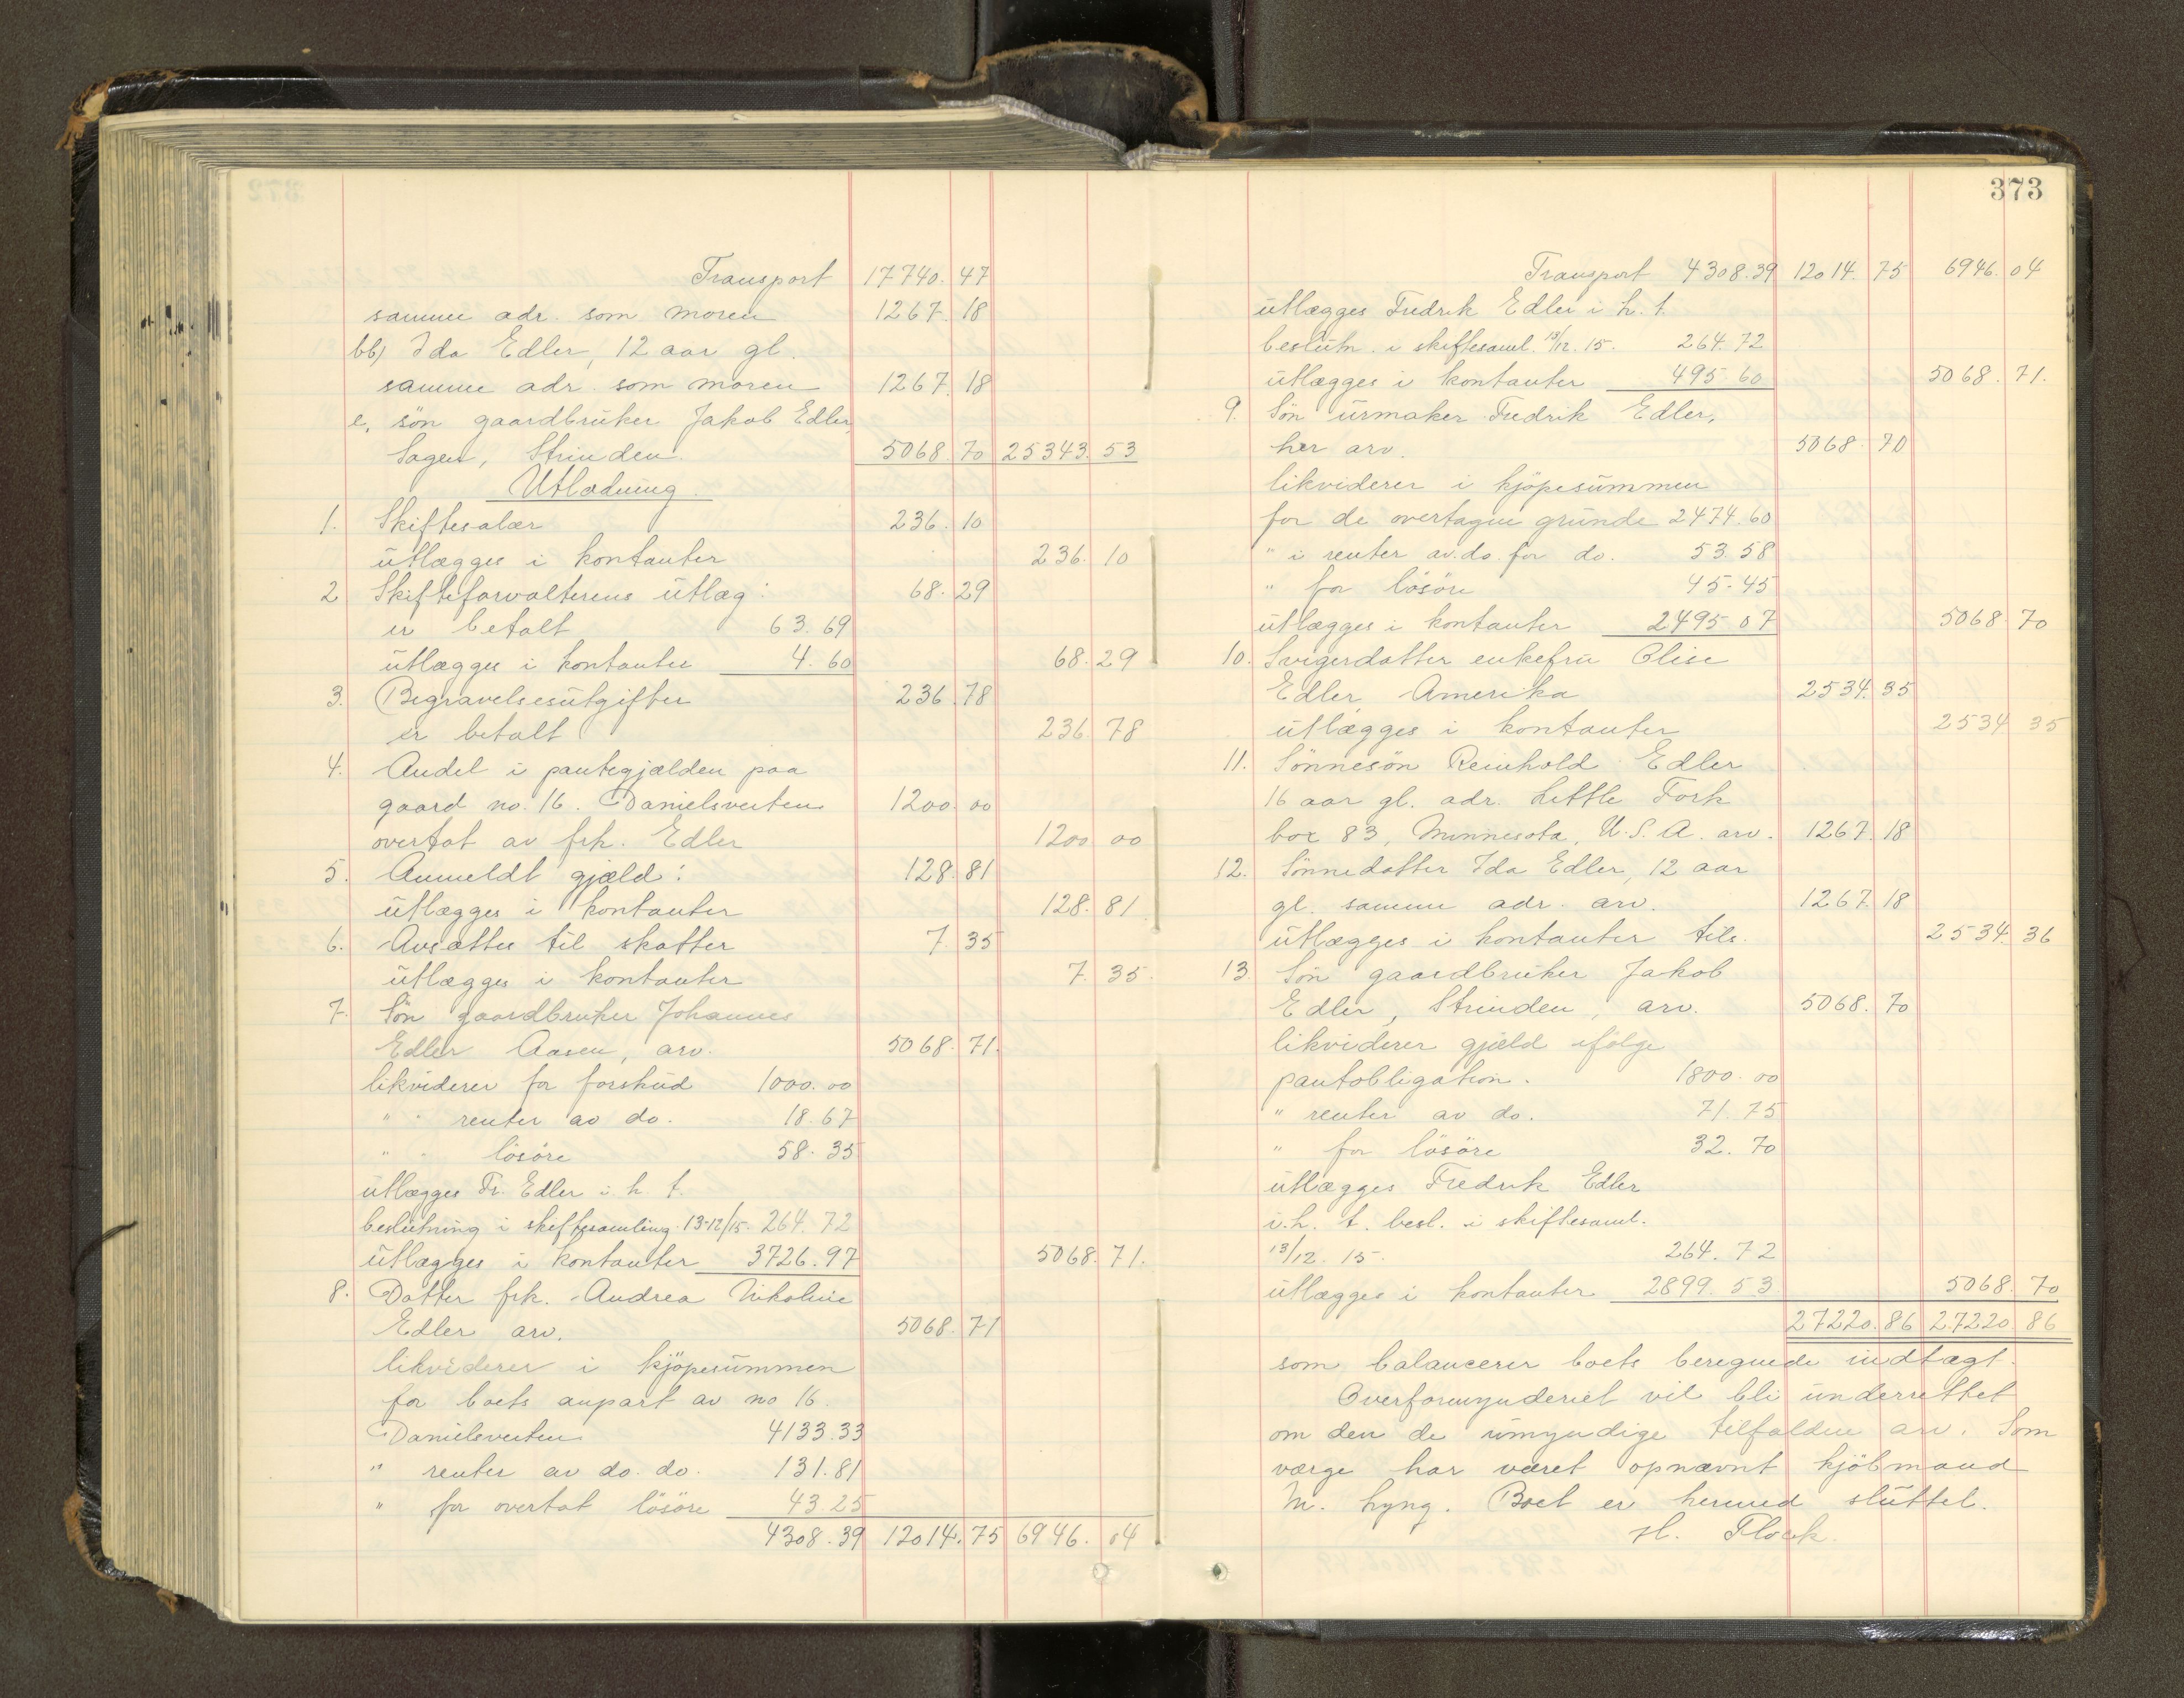 Transport 17740. 47
samme adr. som moren 1267. 18
bb) Ida Edler, 12 aar gl.
samme adr. som moren 1267. 18
e, sön gaardbruker Jakob Edler,
Sagen, Strinden. 5068. 70 25343. 53
Utlædning.
1. Skiftesalær 236. 10
utlægges i kontanter 236. 10
2 Skifteforvalterens utlæg: 68. 29
er betalt 63. 69
utlægges i kontanter 4. 60 68. 29
3. Begravelsesutgifter 236. 78
er betalt 236. 78
4. Andel i pantegjælden paa
gaard no. 16. Danielsveiten 1200. 00
overtat av frk. Edler 1200 00
5. Anmeldt gjæld: 128. 81
utlægges i kontanter 128. 81
6. Avsættes til skatter 7. 35
utlægges i kontanter 7. 35.
7. Sön gaardbruker Johannes
Edler Aasen, arv. 5068. 71.
likviderer for forskud 1000. 00
" " renter av do. 18. 67
" " lösöre 58. 35
utlægges Fr. Edler i h. t.
beslutning i skiftesamling 13-12/15. 264. 72
utlægges i kontanter 3726. 97 5068. 71.
8. Datter frk. Andrea Nikoline
Edler arv. 5068. 71
likviderer i kjöpesummen
for boets anpart av no 16.
Danielsveiten 4133. 33
" renter av do. do. 131. 81
" for overtat lösöre 43. 25
4308. 39 12014. 75 6946. 04
373
Transport 4308. 39 12014. 75 6946. 04
utlægges Fredrik Edler i h. t.
beslutn. i skiftesaml. 13/12. 15. 264. 72
utlægges i kontanter 495. 60 5068. 71.
9. Sön urmaker Fredrik Edler,
her arv. 5068. 70
likviderer i kjöpesummen
for de overtagne grunde 2474. 60
" i renter av. do. for do. 53. 58
" for lösöre 45. 45
utlægges i kontanter 2495 07 5068. 70
10. Svigerdatter enkefru Olise
Edler, Amerika 2534. 35
utlægges i kontanter 2534 35
11. Sönnesön Reinhold Edler
16 aar gl. adr. Little Fork
box 83, Minnesota, U. S. A. arv. 1267. 18
12. Sönnedatter Ida Edler, 12 aar
gl. samme adr. arv. 1267. 18
utlægges i kontanter tils. 2534. 36
13. Sön gaardbruker Jakob
Edler, Strinden, arv. 5068. 70
likviderer gjæld ifölge
pantobligation. 1800. 00
" renter av do. 71. 75
" for lösöre 32. 70
utlægges Fredrik Edler
i. h. t. besl. i skiftesaml.
13/12. 15. 264. 72
utlægges i kontanter 2899. 53 5068. 70
27220. 86 27220 86
som balancerer boets beregnede indtægt.
Overformynderiet vil bli underrettet
om den de umyndige tilfaldne arv. Som
værge har været opnævnt kjöbmand
M. Lyng. Boet er hermed sluttet.
Flock.